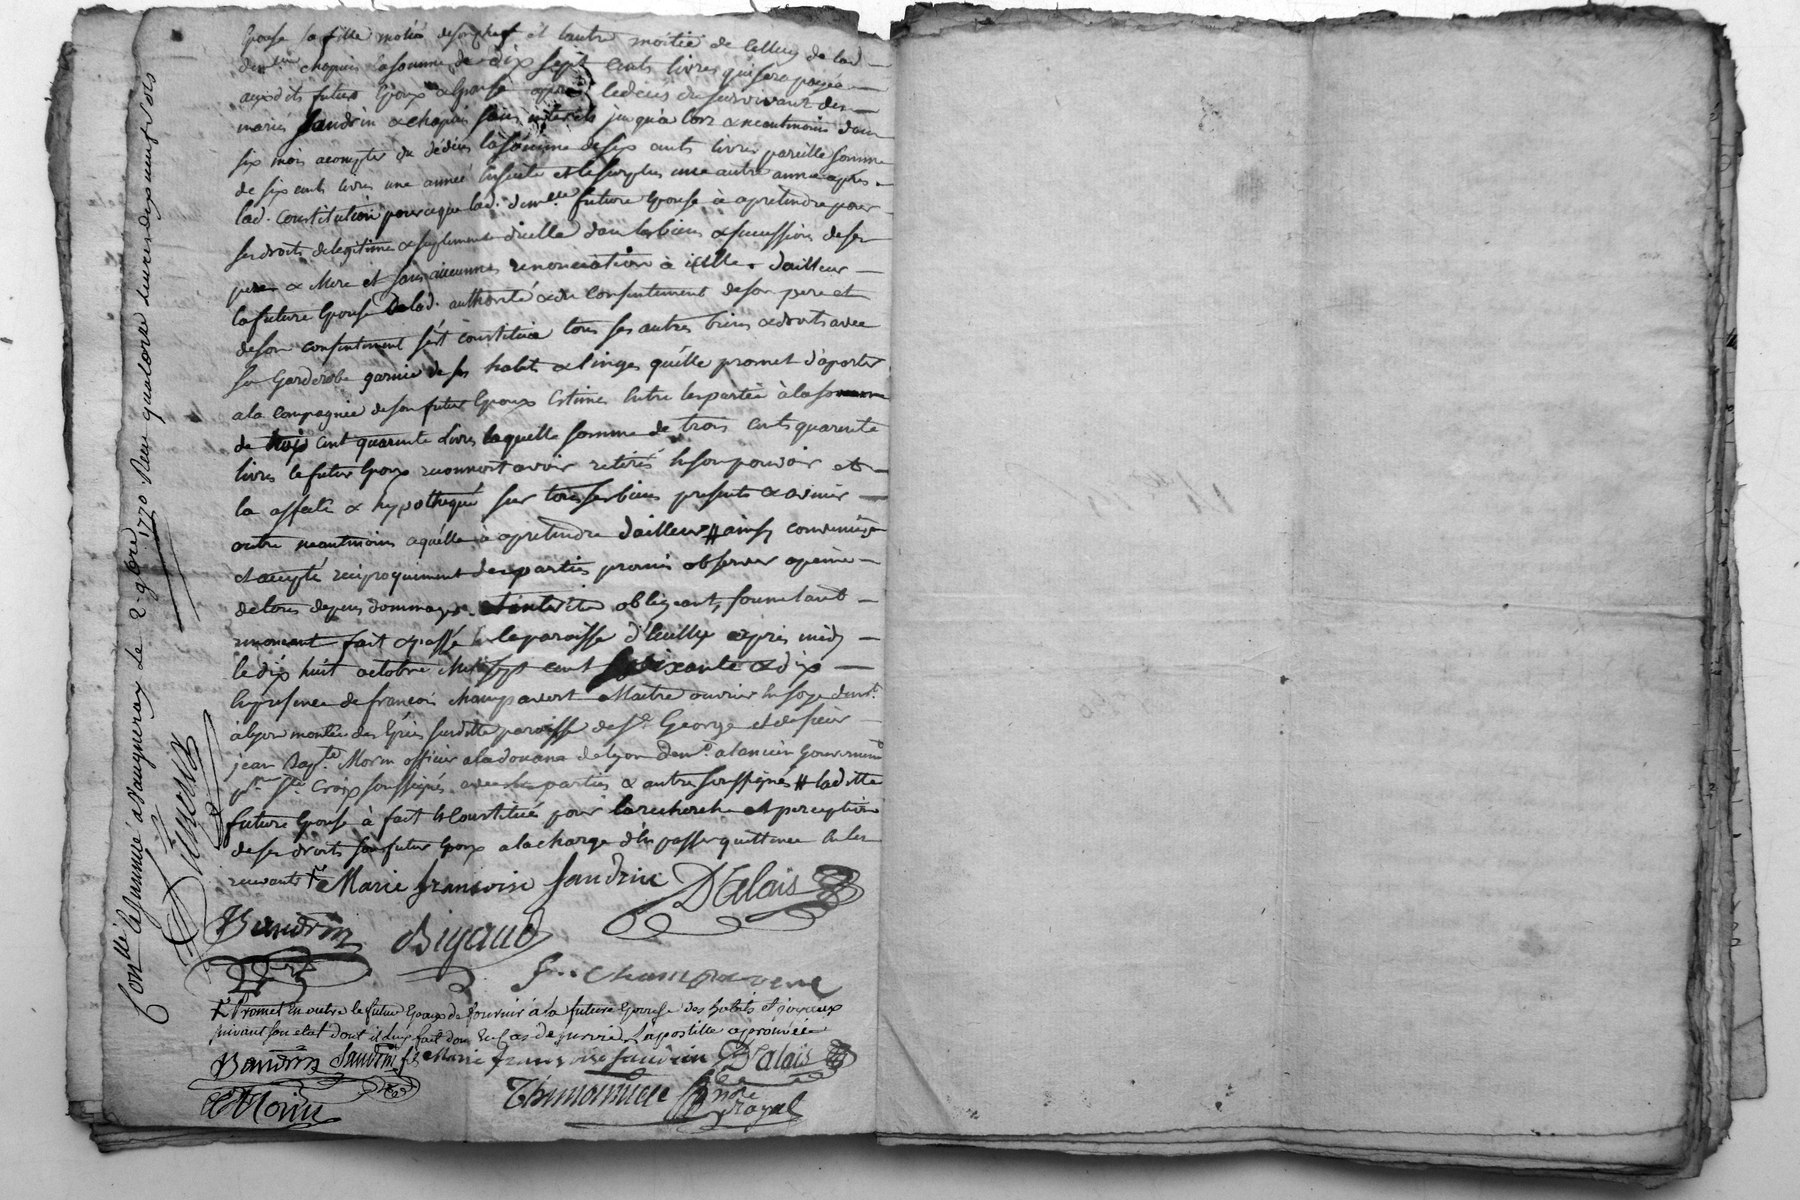 Epouse sa fille moitié de son chef et lautre moitié de celluy de lad.
dem.lle chapuis la somme de dix sept cents livres qui sera payée
auxdits futurs Epoux & Epouse apres le deces du survivant des
mariés Sandrin & chapuis sans interets jusqua lors & neantmoins dans
six mois a compter du décéds la somme de six cents livres pareille somme
de six cents livres une année ensuite et le surplus une autre année après
lad. Constitution pour ce que lad. dem.lle future Epouse à a pretendre pour
ses droits de legitime & suplement dicelle dans les biens & successions de ses
pere & Mere et sans aucunnes renonciation à icelle. dailleur
la future Epouse de lad. authorité & du consentement de son pere et
de son consentement s'est constituée tous ses autres biens & droits avec
sa Garderobe garnie de ses habits & linges qu'elle promet d'aporter
a la compagnie de son futur Epoux Estimés Entre les parties à la somme
de trois cent quarente Livres laquelle somme de trois cents quarente
livres le futur Epoux reconnoit avoir retirés En son pouvoir et
la assurée & hypothequé sur tous ses biens presents & avenir
outre neantmoins a quelle à a pretendre dailleur # ainsy convenu
et accepté reciproquement des parties promis observer a peine
de tous depens dommages et interets obligeant, soumetant
renoncant fait & passé En la paroisse d'Eculli après midy
le dix huit octobre Mil sept cent soixante & dix
En presence de francois champavert Maitre ouvrier En soye dem.t
à lyon montée des Epies susditte paroisse de S.t George et de sieur
jean Bap.te Morin officier a la douane de lyon dem.t a lancien Gouvernem.t
p.sse S.te Croix soussignés avec les parties & autres soussignés # laditte
future Epouse à fait & Constitué pour la recherche et perception
de ses droits son futur Epoux a la charge d'En passer quittance En les
recevants
Marie francoise Sandrin D'Alais
Bandrin Bigaud
f.. Champavere
Promet En outre le futur Epoux de fournir à la future Epouse des habits et joyaux
suivant son etat dont il luy fait don En Cas de survie L'apostille aprouvée
Bandrin Sandrin fs Marie francoise Sandrin D'Alais
Morin Thimonniere nore royal
Con.lle Et Insinué a Vaugneray Le 2 9bre 1770 Reçu quatorze livres dix neuf sols